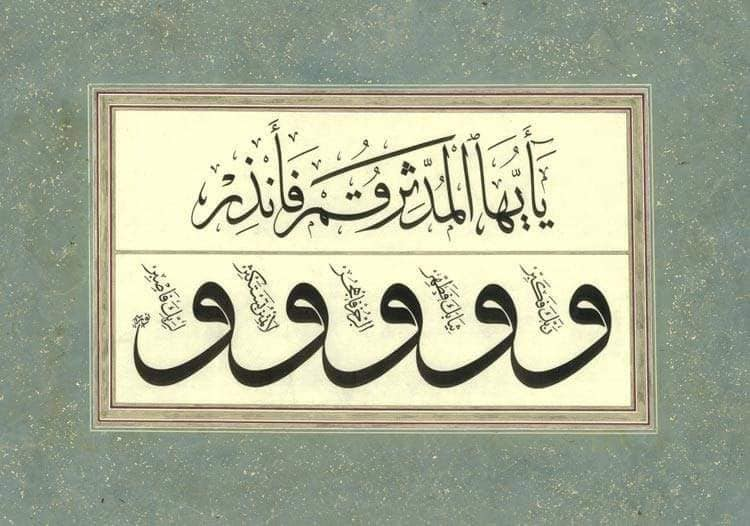 يَآأَيُّهَا ٱلْمُدَّثِّرُ قُمْ فَأَنْذِرْ
و رَبَّكَ فَكَبِّرْ و ثِيَابَكَ فَطَهِّرْ و الرُّجْزَ فَاهْجُرْ و لَا تَمْنُنْ تَسْتَكْثِرُ و لِرَبِّكَ فَاصْبِرْ